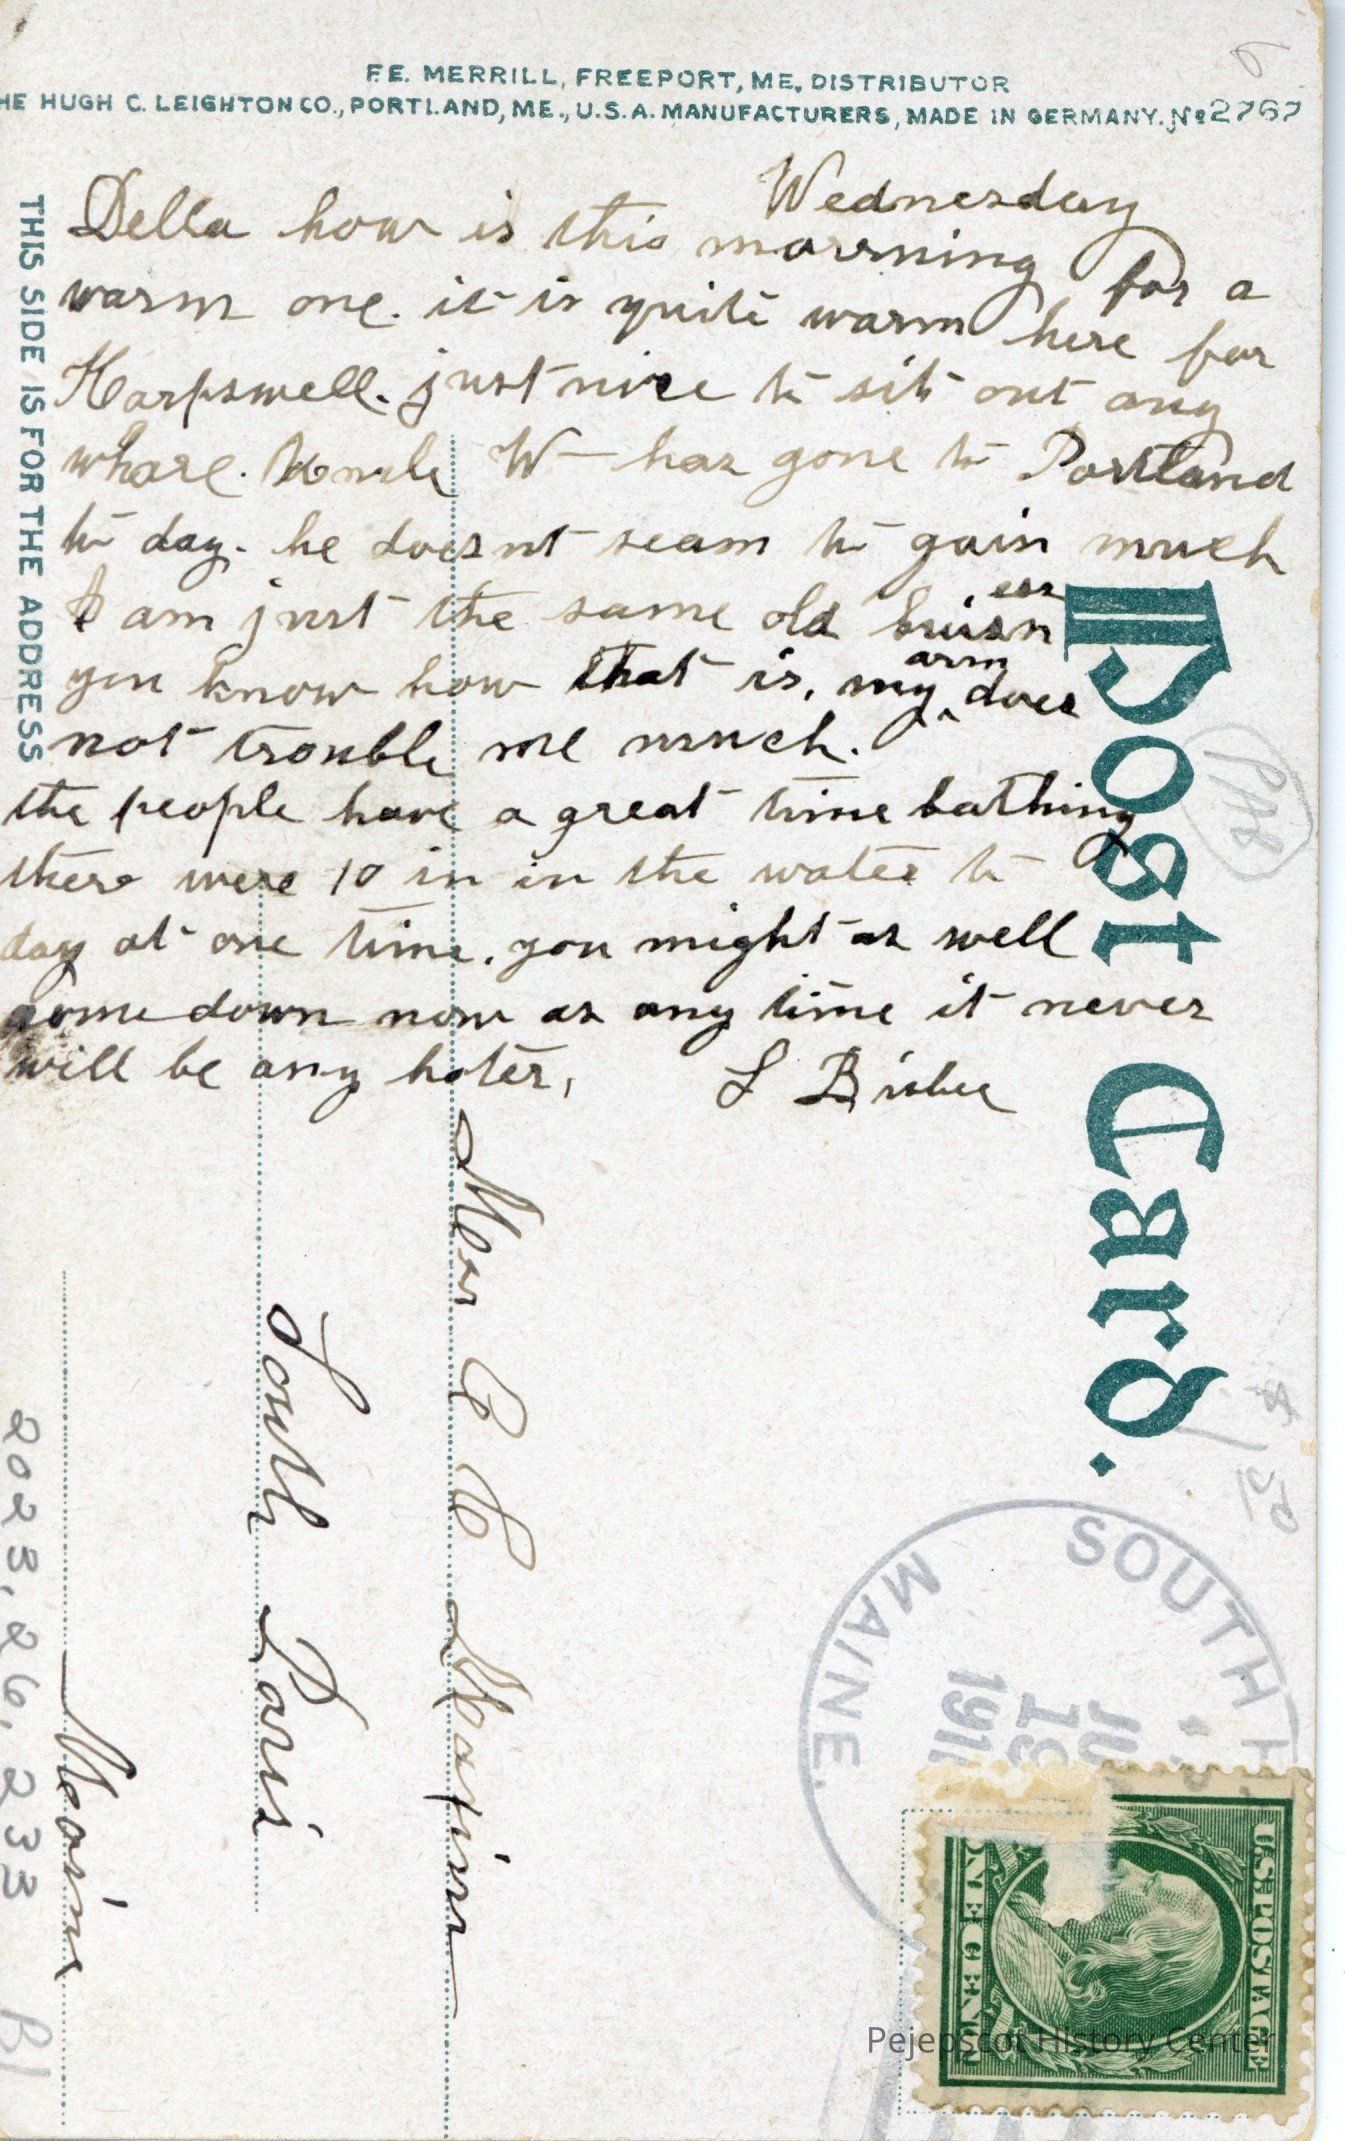 F.E. MERRILL, FREEPORT, ME., DISTRIBUTOR
HE HUGH C. LEIGHTON CO., PORTLAND, ME., U.S.A. MANUFACTURERS, MADE IN GERMANY. No 2767
THIS SIDE IS FOR THE ADDRESS
Post Card.
Wednesday
Della how is this morrning for a
warm one. it is quite warm here for
Harpswell. just nice to sit out any
whare. Unkle W— has gone to Portland
to day. he doesnt seam to gain much
I am just the same old buisness
you know how that is, my arm does
not trouble me much.
the people have a great time bathing
there were 10 in in the water to
day at one time. you might as well
come down now as any time it never
will be any hoter,
L Bisbee
Mrs E C Maxim
South Paris
Maine
SOUTH H
MAINE.
JU
19
191
U.S. POSTAGE
ONE CENT
2023.26.233
Pejepscot History Center